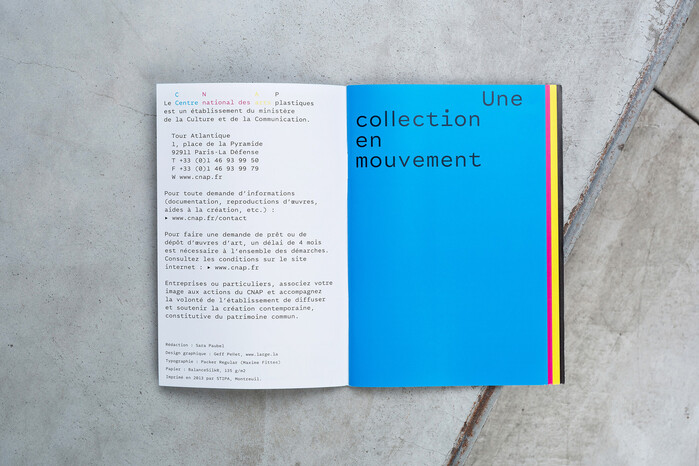 C N A P
Le Centre national des arts plastiques
est un établissement du ministère
de la Culture et de la Communication.
Tour Atlantique
1, place de la Pyramide
92911 Paris-La Défense
T +33 (0)1 46 93 99 50
F +33 (0)1 46 93 99 79
W www.cnap.fr
Pour toute demande d'informations
(documentation, reproductions d'œuvres,
aides à la création, etc.) :
▸ www.cnap.fr/contact
Pour faire une demande de prêt ou de
dépôt d'œuvres d'art, un délai de 4 mois
est nécessaire à l'ensemble des démarches.
Consultez les conditions sur le site
internet : ▸ www.cnap.fr
Entreprises ou particuliers, associez votre
image aux actions du CNAP et accompagnez
la volonté de l'établissement de diffuser
et soutenir la création contemporaine,
constitutive du patrimoine commun.
Rédaction : Sara
Design graphique : Geff Pellet, www.large.la
Typographie : Regular (Maxime
Papier : BalanceSilk®, 135 g/m2
Imprimé en 2013 par STIPA, Montreuil.
Une
collection
en
mouvement